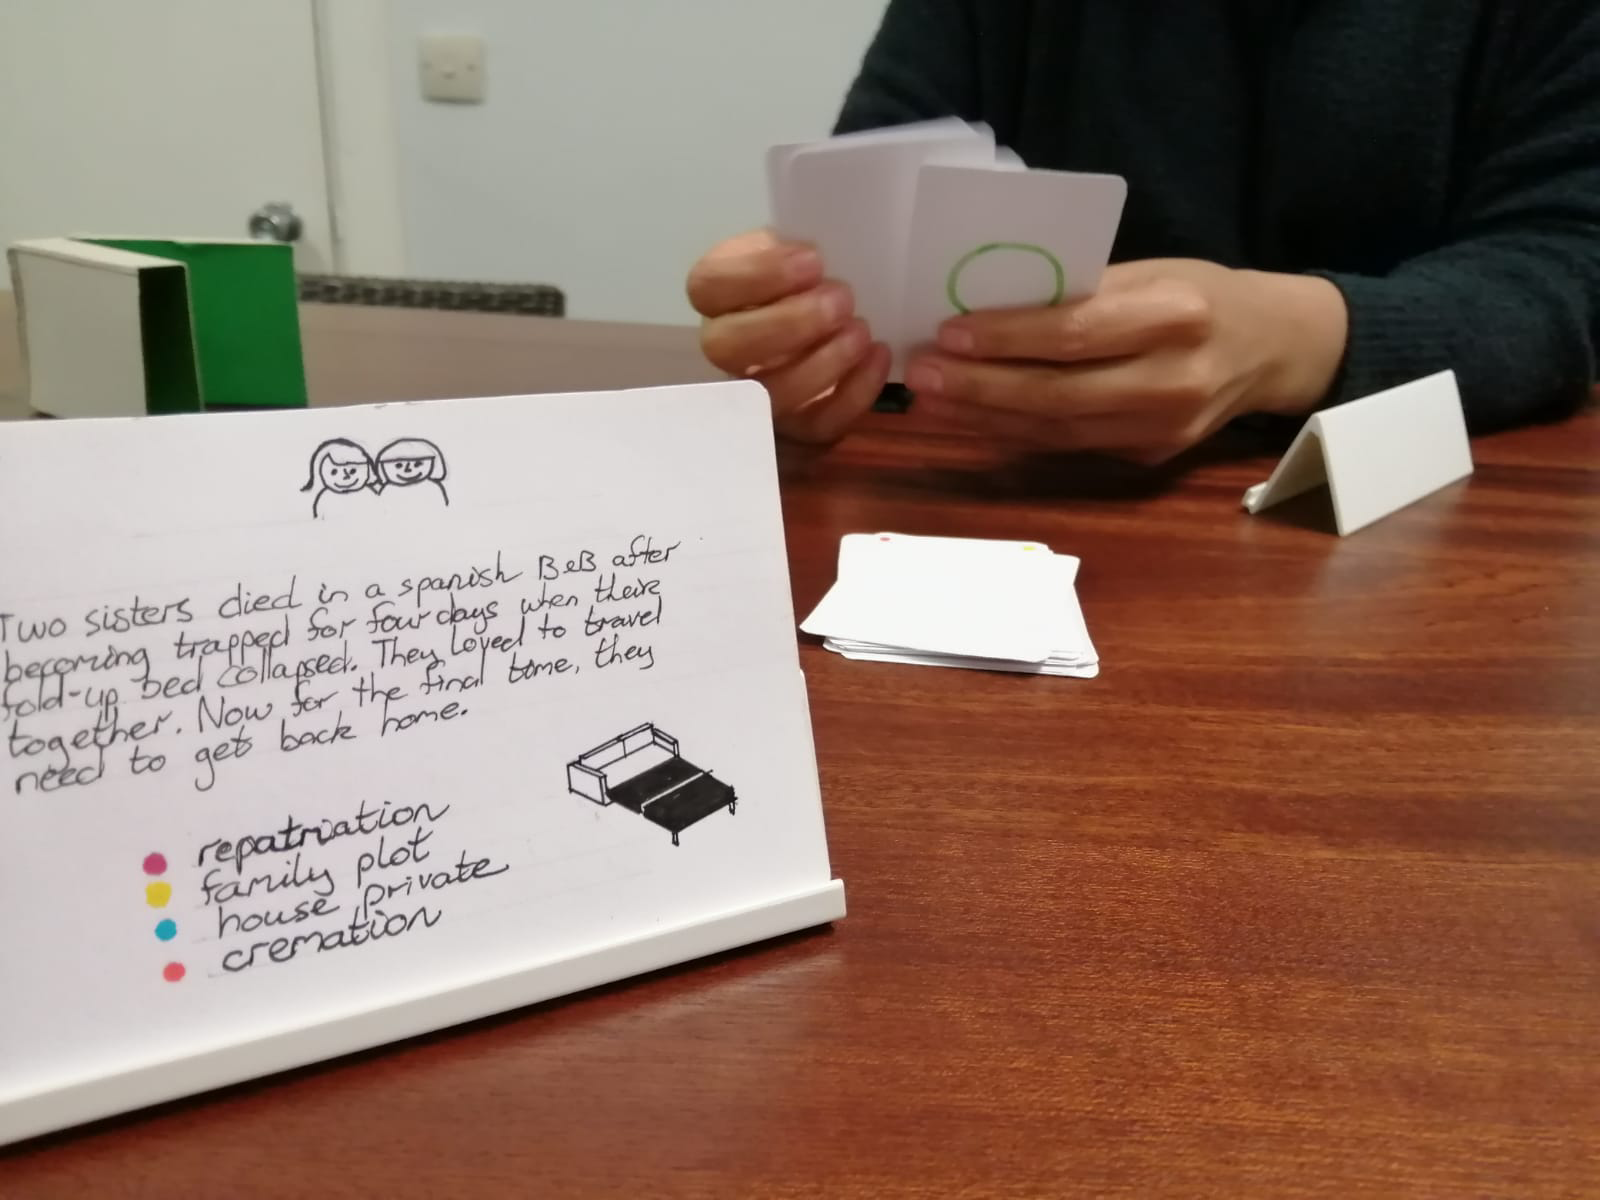 Two sisters died in a spanish B&B after
becoming trapped for four days when their
fold-up bed collapsed. They loved to travel
together. Now for the final time, they
need to get back home.
repatriation
family plot
house private
cremation